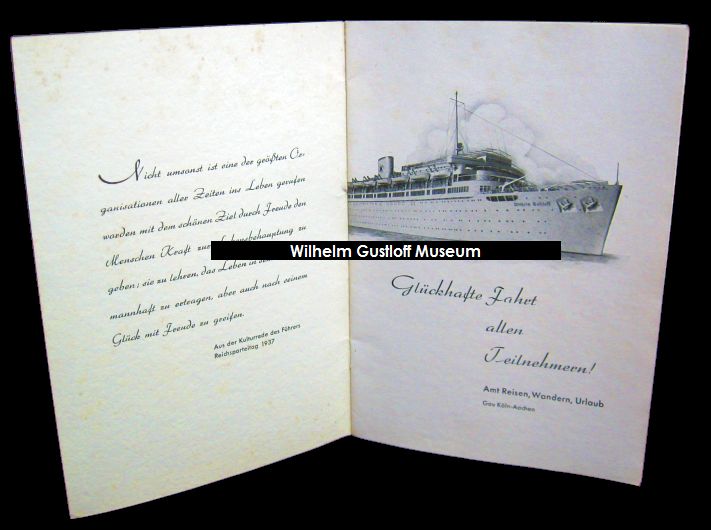 Nicht umsonst ist eine der größten Or-
ganisationen aller Zeiten ins Leben gerufen
worden mit dem schönen Ziel durch Freude den
Menschen Kraft zur Lebensbehauptung zu
geben; sie zu lehren, das Leben in
mannhaft zu ertragen, aber auch nach seinem
Glück mit Freude zu greifen.
Aus der Kulturrede des Führers
Reichsparteitag 1937
Wilhelm Gustloff Museum
Wilhelm Gustloff
Glückhafte Fahrt
allen
Teilnehmern!
Amt Reisen, Wandern, Urlaub
Gau Köln-Aachen